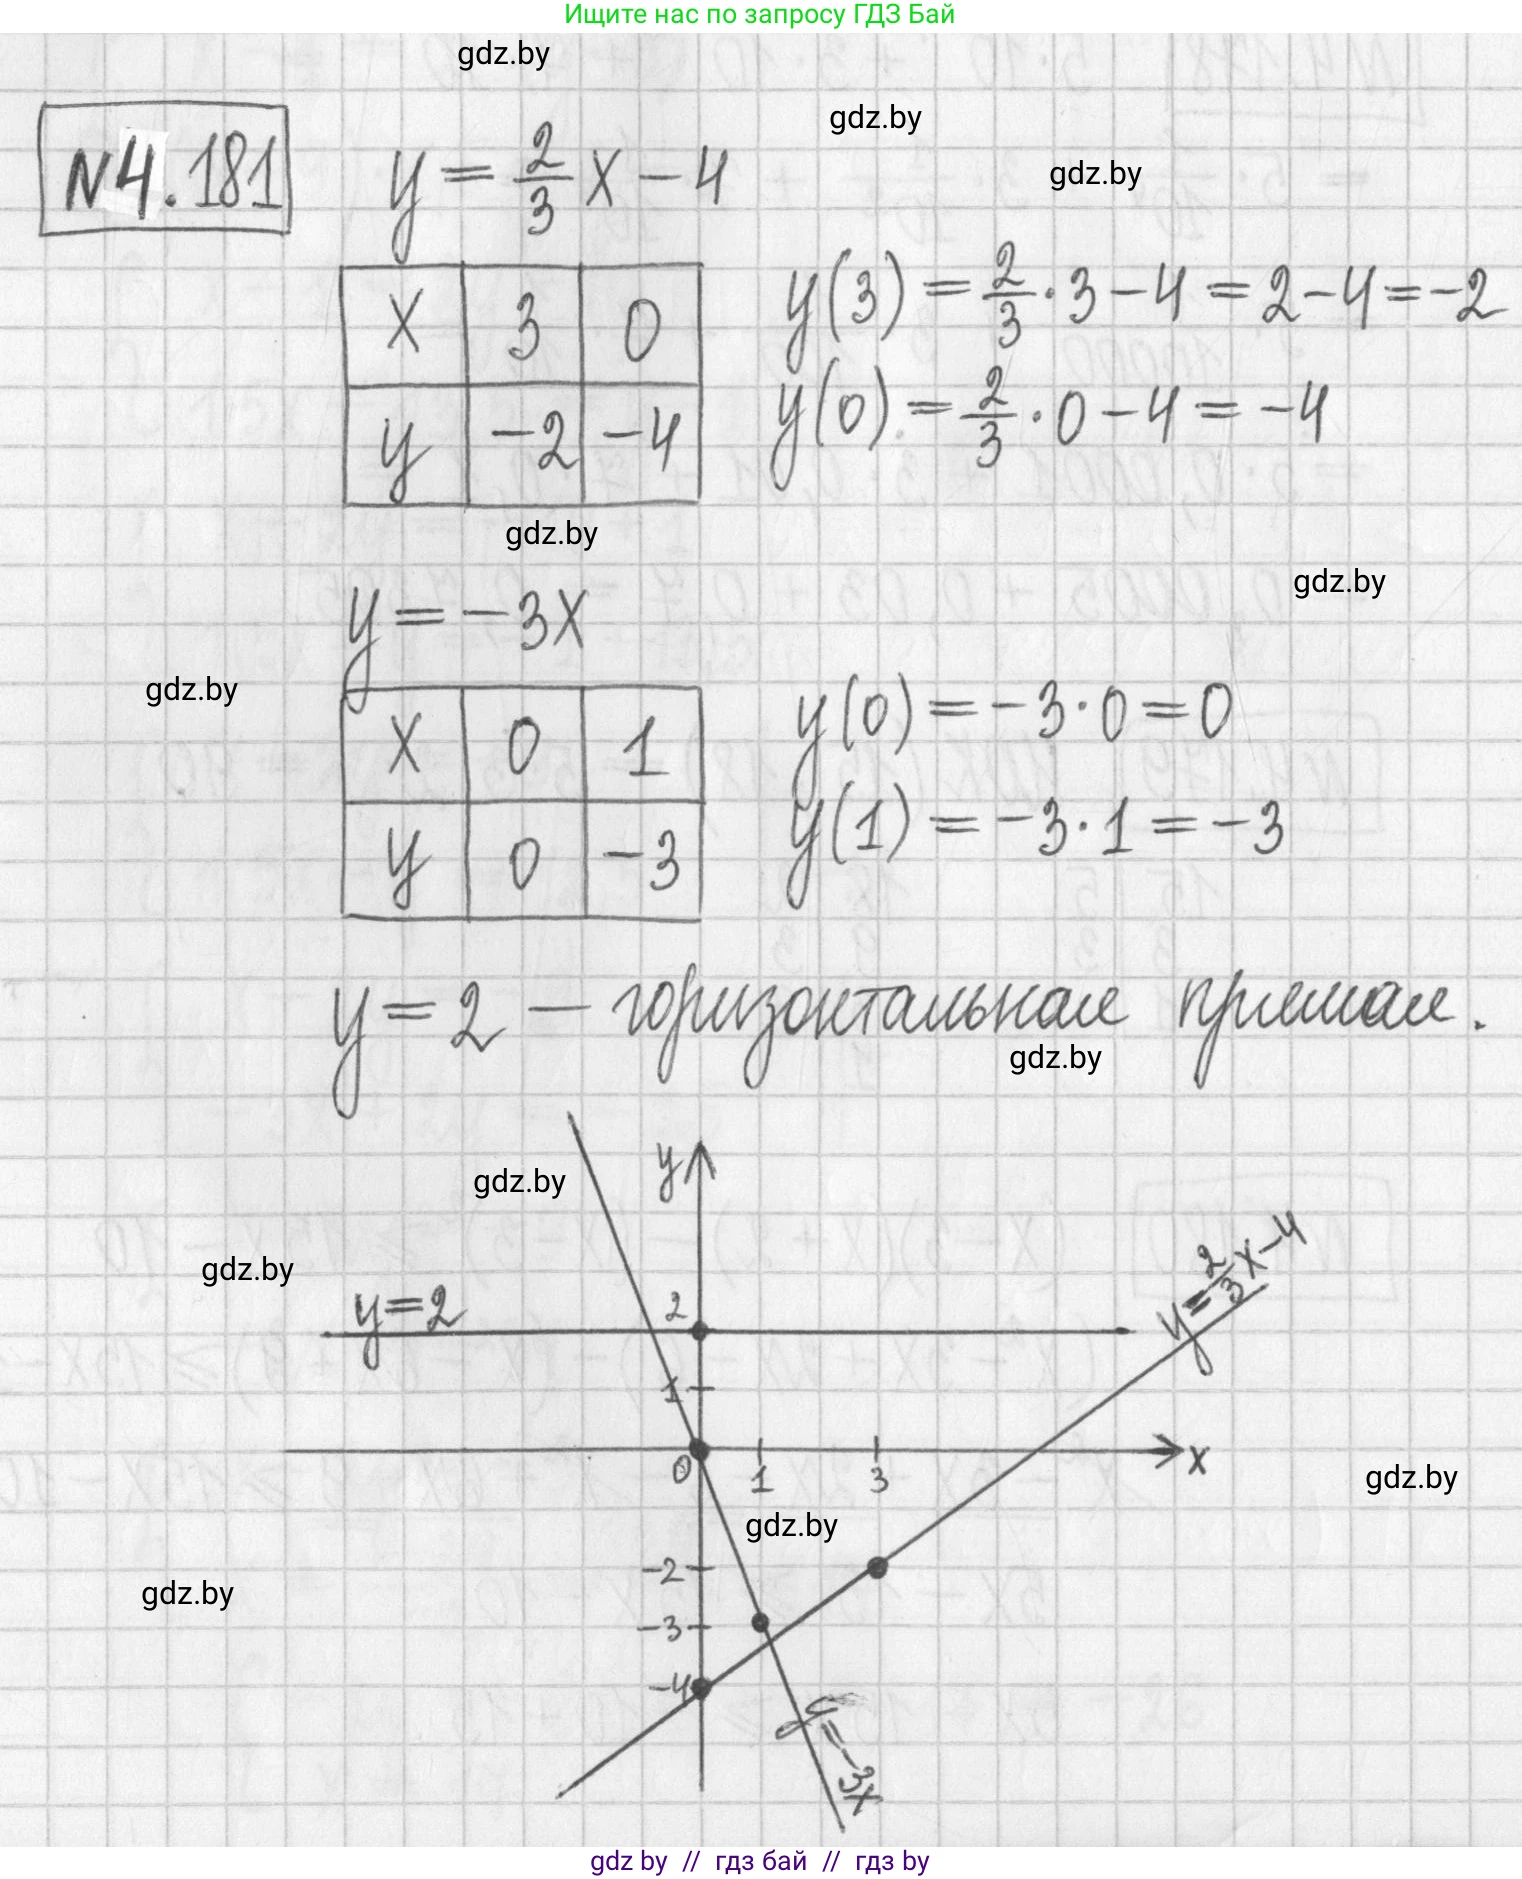 Ищите нас по запросу ГДЗ Бай
gdz.by
gdz.by
gdz.by
N4.181
y = 2/3 x − 4
x 3 0
y −2 −4
y(3) = 2/3 · 3 − 4 = 2 − 4 = −2
y(0) = 2/3 · 0 − 4 = −4
gdz.by
gdz.by
y = −3x
gdz.by
x 0 1
y 0 −3
y(0) = −3 · 0 = 0
y(1) = −3 · 1 = −3
y = 2 — горизонтальная прямая.
gdz.by
y
gdz.by
gdz.by
y = 2/3 x − 4
y = 2
2
1
0 1 3 x
gdz.by
gdz.by
−2
gdz.by
−3
−4
y = −3x
gdz by // гдз бай // гдз by